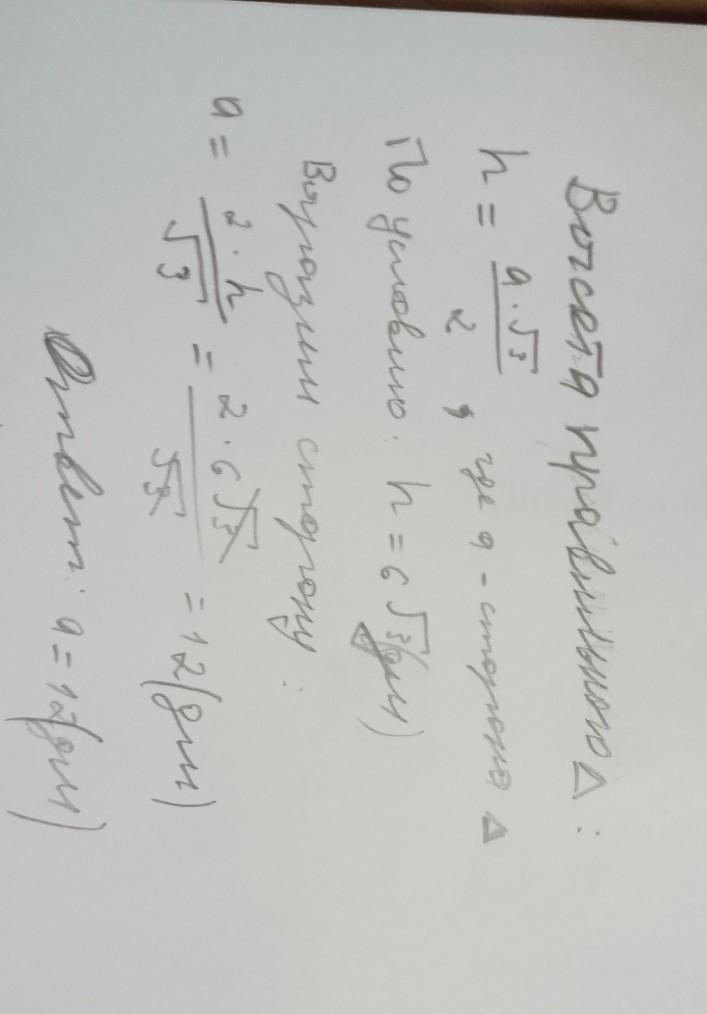 Высота правильного △:
h = a·√3/2, где a - сторона △
По условию: h = 6√3(дм)
Выразим сторону:
a = 2·h/√3 = 2·6√3/√3 = 12(дм)
Ответ: a = 12(дм)